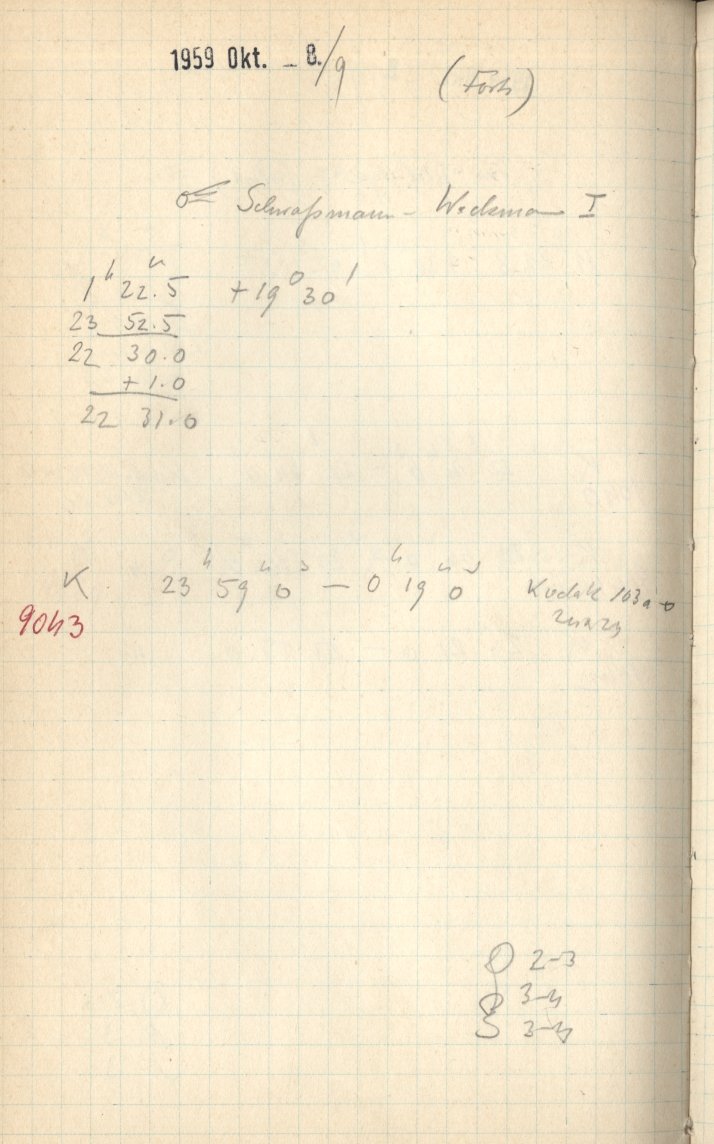 1959 Okt. - 8./9 (Forts)
☄ Schwaßmann - Wachmann I
1ʰ 22.5 +19° 30'
23 52.5
22 30.0
+ 1.0
22 31.0
K 23ʰ 59ᵐ 0ˢ — 0ʰ 19ᵐ 0ˢ Kodak 103a-o
9043
2-3
3-4
3-4